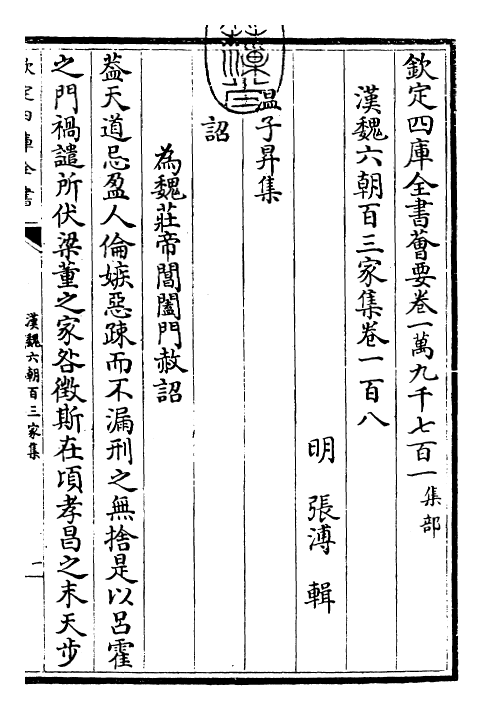 欽定四庫全書薈要卷一萬九千七百一集部
漢魏六朝百三家集卷一百八
明 張溥 輯
温子昇集
詔
為魏莊帝閶闔門赦詔
葢天道忌盈人倫嫉惡疎而不漏刑之無捨是以呂霍
之門禍譴所伏梁董之家咎徴斯在頃孝昌之末天步
欽定四庫全書
漢魏六朝百三家集
一